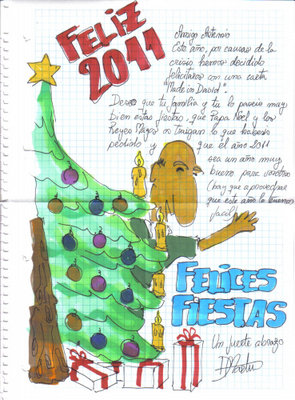 FELIZ
2011
Amigo Antonio
Este año, por causas de la
crisis hemos decidido
felicitaros con una carta
"Made in David".
Deseo que tu familia y tu lo paseis muy
bien estas fiestas, que Papa Noel y los
Reyes Magos os traigan lo que habeis
pedido y que el año 2011
sea un año muy
bueno para vosotros
(hay que aprovechar
que este año lo tenemos
facil)
FELICES
FIESTAS
Un fuerte abrazo